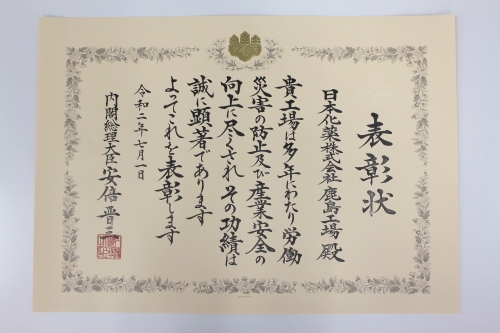 表彰状
日本化薬株式会社 鹿島工場 殿
貴工場は多年にわたり労働
災害の防止及び産業安全の
向上に尽くされ その功績は
誠に顕著であります
よってこれを表彰します
令和二年七月一日
内閣総理大臣 安倍晋三